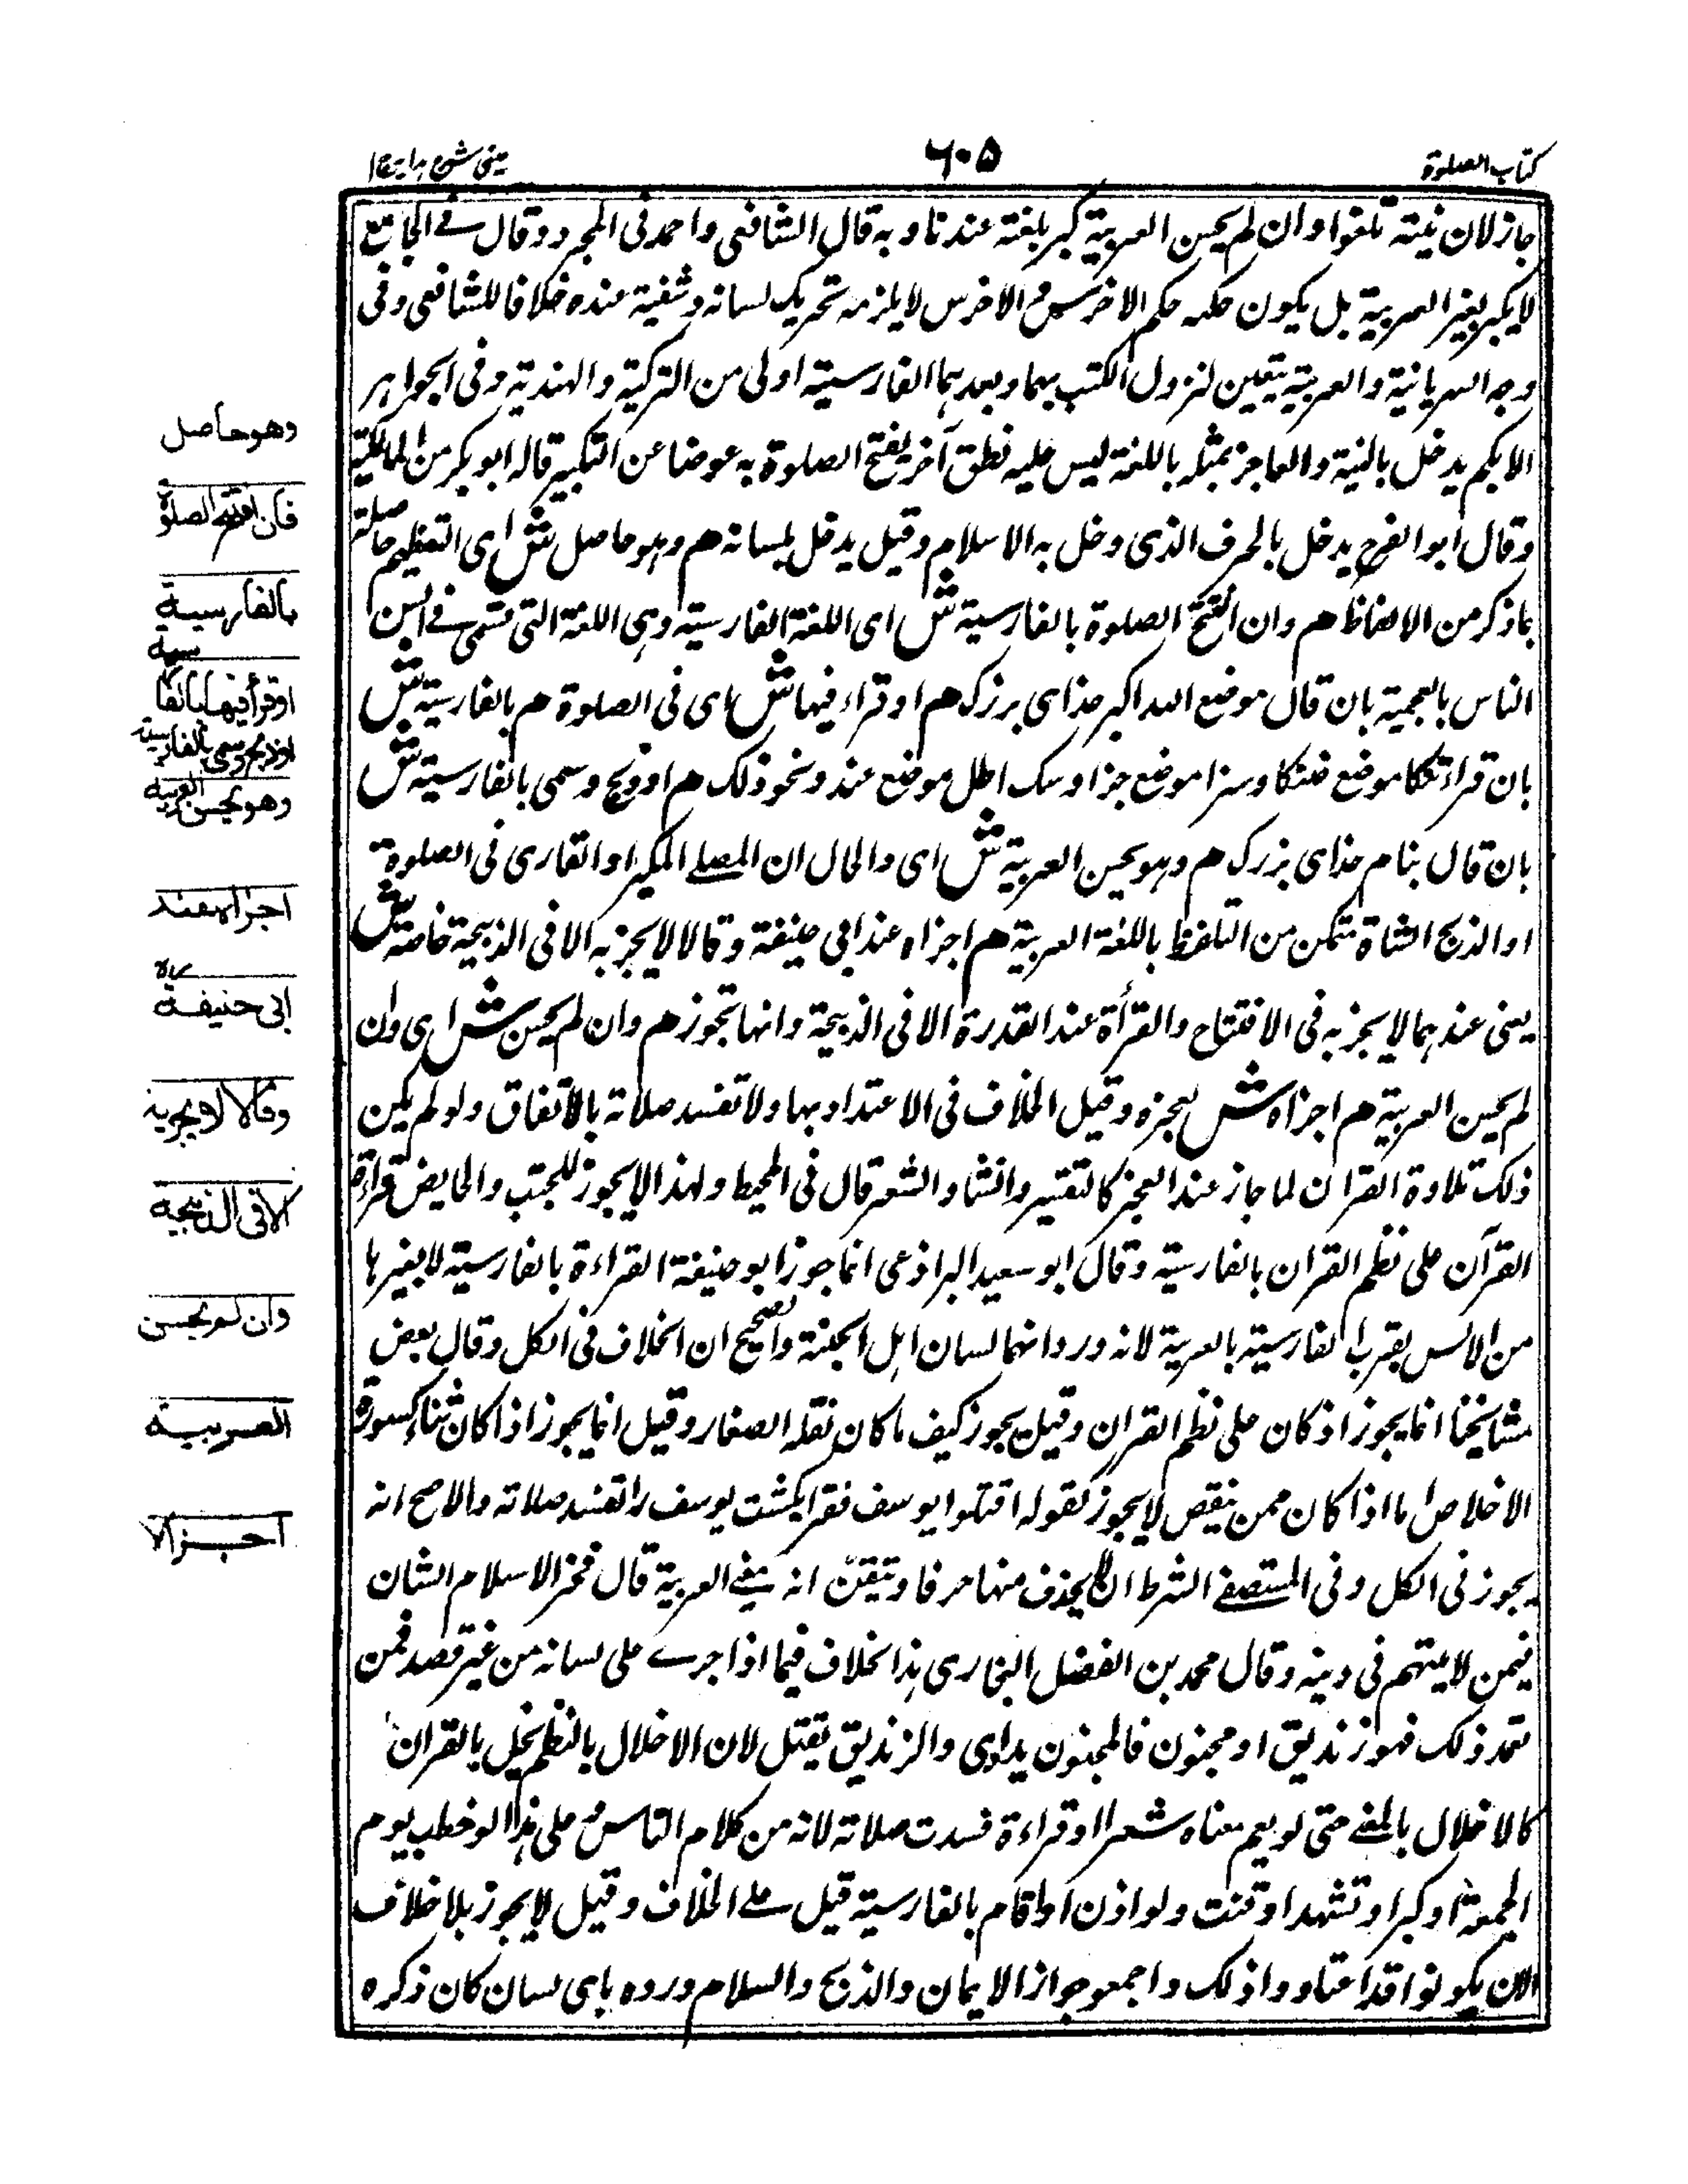 كتاب الصلوة
٦٠٥
عينى شرح هدايه ج ١
جاز لان نيته تلغوا وان لم يحسن العربية كبر بلغته عندنا وبه قال الشافعى واحمد فى المجرد وقال فے الجامع
لا يكبر بغير العربية بل يكون حكمه حكم الاخرس م الاخرس لا يلزمه تحريك لسانه وشفتيه عنده خلافا للشافعى وفى
وجه السريانية والعربية يتعين لنزول الكتب بهما وبعدهما الفارسية اولى من التركية والهندية وفى الجواهر
الابكم يدخل بالنية والعاجز بمثله باللغة ليس عليه نطق آخر يفتح الصلوة به عوضا عن التكبير قاله ابو بكر من المالكية
وقال ابو الفرج يدخل بالحرف الذى دخل به الاسلام وقيل يدخل بلسانه هم وهو حاصل ش اى التعظيم حاصلة
بما ذكر من الالفاظ هم وان افتتح الصلوة بالفارسية ش اى اللغة الفارسية وهى اللغة التى تسمى فے السن
الناس بالعجمية بان قال موضع الله اكبر خداى بزرك هم او قراء فيها ش اى فى الصلوة هم بالفارسية ش
بان قراء تنكا موضع ضنكا وسزا موضع جزا وسك اطل موضع عند ونحو ذلك هم او ذبح وسمى بالفارسية ش
بان قال بنام خداى بزرك هم وهو يحسن العربية ش اى والحال ان المصلے المكبر او القارى فى الصلوة
او الذبح الشاة متمكن من التلفظ باللغة العربية هم اجزاه عند ابى حنيفة وقالا لا يجزيه الا فى الذبيحة خاصة ش
يعنى عندهما لا يجزيه فى الافتتاح والقرأة عند القدرة الا فى الذبيحة وانها تجوز هم وان لم يحسن ش اى وان
لم يحسن العربية هم اجزاه ش لعجزه وقيل الخلاف فى الاعتداد بها ولا تفسد صلاته بالاتفاق ولو لم يكن
ذلك تلاوة القران لما جاز عند العجز كالتفسير وانشاد الشعر قال فى المحيط ولهذا لا يجوز للجنب والحايض قراءة
القرآن على نظم القران بالفارسية وقال ابو سعيد البراذعى انما جوز ابو حنيفة القراءة بالفارسية لا بغيرها
من الالسن لقرب الفارسية بالعربية لانه ورد انهما لسان اهل الجنة والصحيح ان الخلاف فى الكل وقال بعض
مشايخنا انما يجوز اذ كان على نظم القران وقيل يجوز كيف ما كان نقله الصفار وقيل انما يجوز اذا كان ثناء كسورة
الاخلاص اما اذا كان ممن نيقص لا يجوز كقوله اقتلوا يوسف فقرا بكشت يوسف را تفسد صلاته والاصح انه
يجوز فى الكل وفى المستصفے الشرط ان لا يحذف منها حرفا وتيقن انه بمعنے العربية قال فخر الاسلام الشان
فيمن لا يتهم فى دينه وقال محمد بن الفضل البخارى هذا الخلاف فيما اذا جرے على لسانه من غير قصد فمن
تعمد ذلك فهو زنديق او مجنون فالمجنون يداوى والزنديق يقتل لان الاخلال بالنظم يخل بالقران
كالاخلال بالمعنے حتى لو نعم معناه شعرا او قراءة فسدت صلاته لانه من كلام الناس م على هذا لو خطب يوم
الجمعة او كبر او تشهد او قنت ولو اذن او اقام بالفارسية قيل علے الخلاف وقيل لا يجوز بلا خلاف
الا ان يكونوا قد اعتادوا ذلك واجمعو جواز الايمان والذبح والسلام ورده باى لسان كان ذكره
وهو حاصل
فان افتتح الصلوة
بالفارسية
او قرأ فيها بالفا سية
او ذبح وسمى بالفارسية
وهو يحسن العربية
اجزاه عند
ابى حنيفة ره
وقالا لا يجزيه
الا فى الذبيحة
وان لم يحسن
العربية
اجزاه